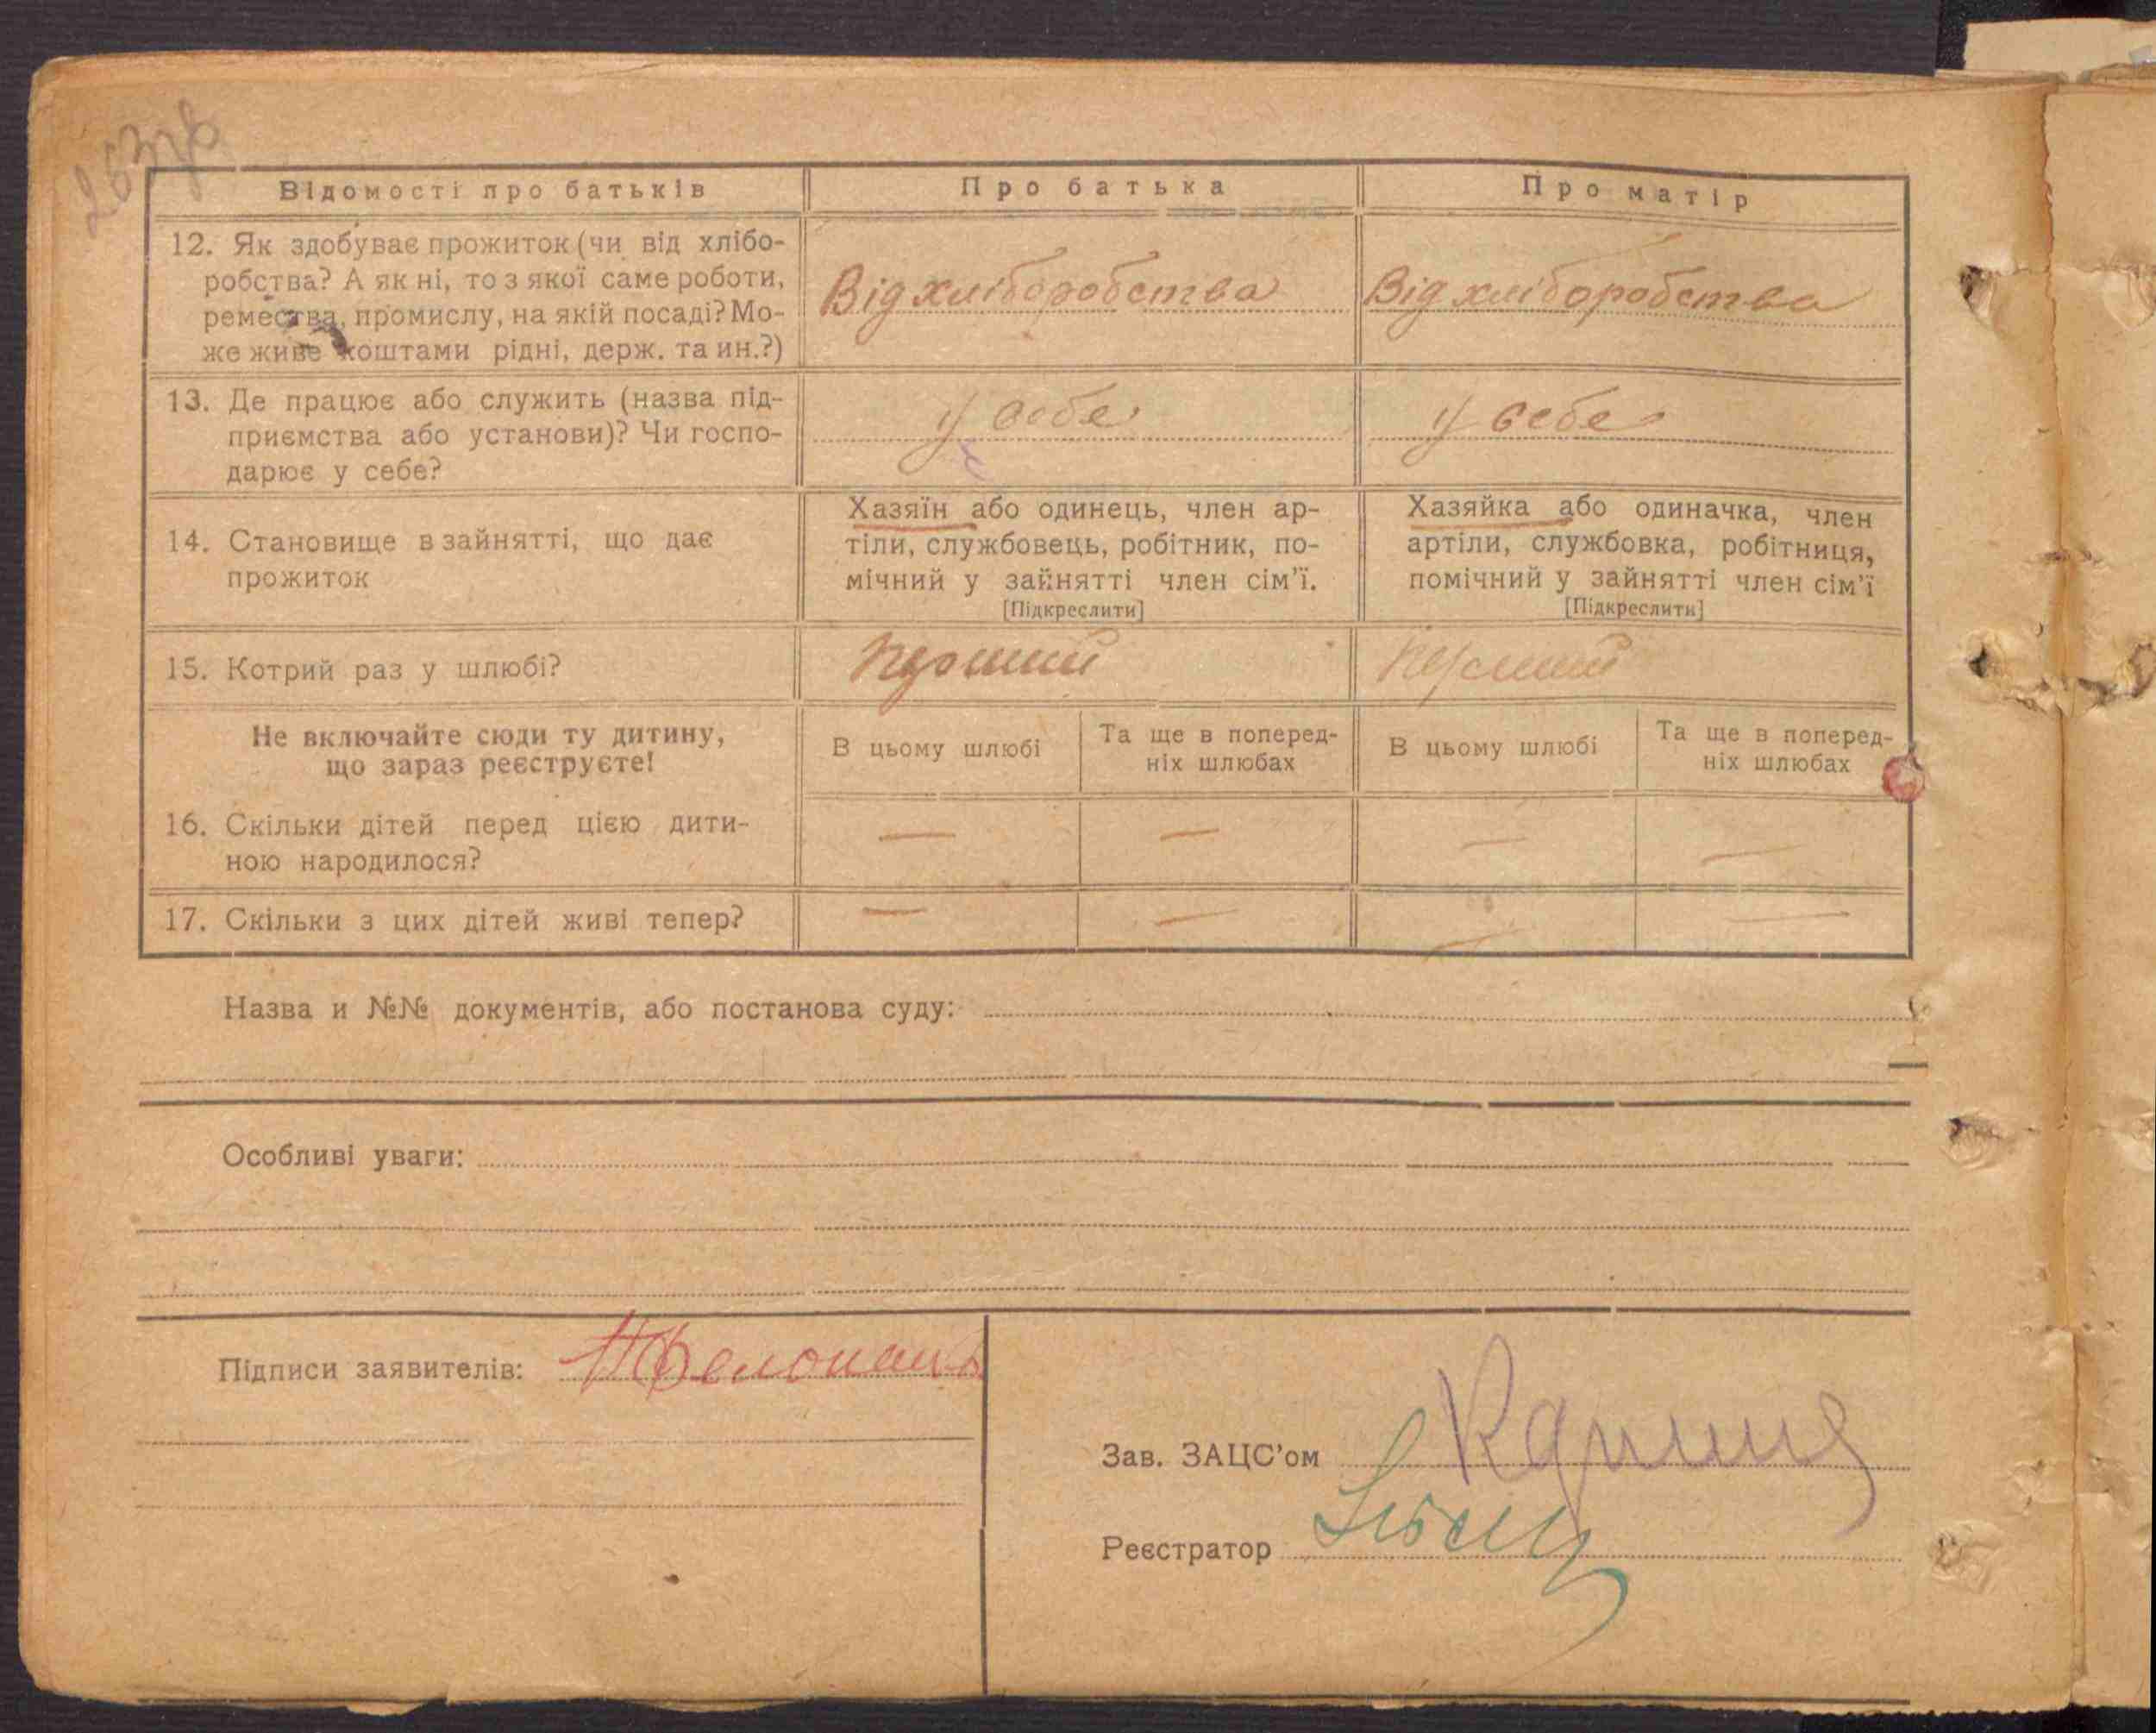 263зв
Відомості про батьків
Про батька
Про матір
12. Як здобуває прожиток (чи від хлібо-
робства? А як ні, то з якої саме роботи,
ремества, промислу, на якій посаді? Мо-
же живе коштами рідні, держ. та ин.?)
Від хліборобства
Від хліборобства
13. Де працює або служить (назва під-
приємства або установи)? Чи госпо-
дарює у себе?
у себе
у себе
14. Становище в зайнятті, що дає
прожиток
Хазяїн або одинець, член ар-
тіли, службовець, робітник, по-
мічний у зайнятті член сім'ї.
[Підкреслити]
Хазяйка або одиначка, член
артіли, службовка, робітниця,
помічний у зайнятті член сім'ї
[Підкреслити]
15. Котрий раз у шлюбі?
Перший
Перший
Не включайте сюди ту дитину,
що зараз реєструєте!
В цьому шлюбі
Та ще в поперед-
ніх шлюбах
В цьому шлюбі
Та ще в поперед-
ніх шлюбах
16. Скільки дітей перед цією дити-
ною народилося?
— — — —
17. Скільки з цих дітей живі тепер?
— — — —
Назва и №№ документів, або постанова суду:
Особливі уваги:
Підписи заявителів:
Зав. ЗАЦС'ом
Реєстратор